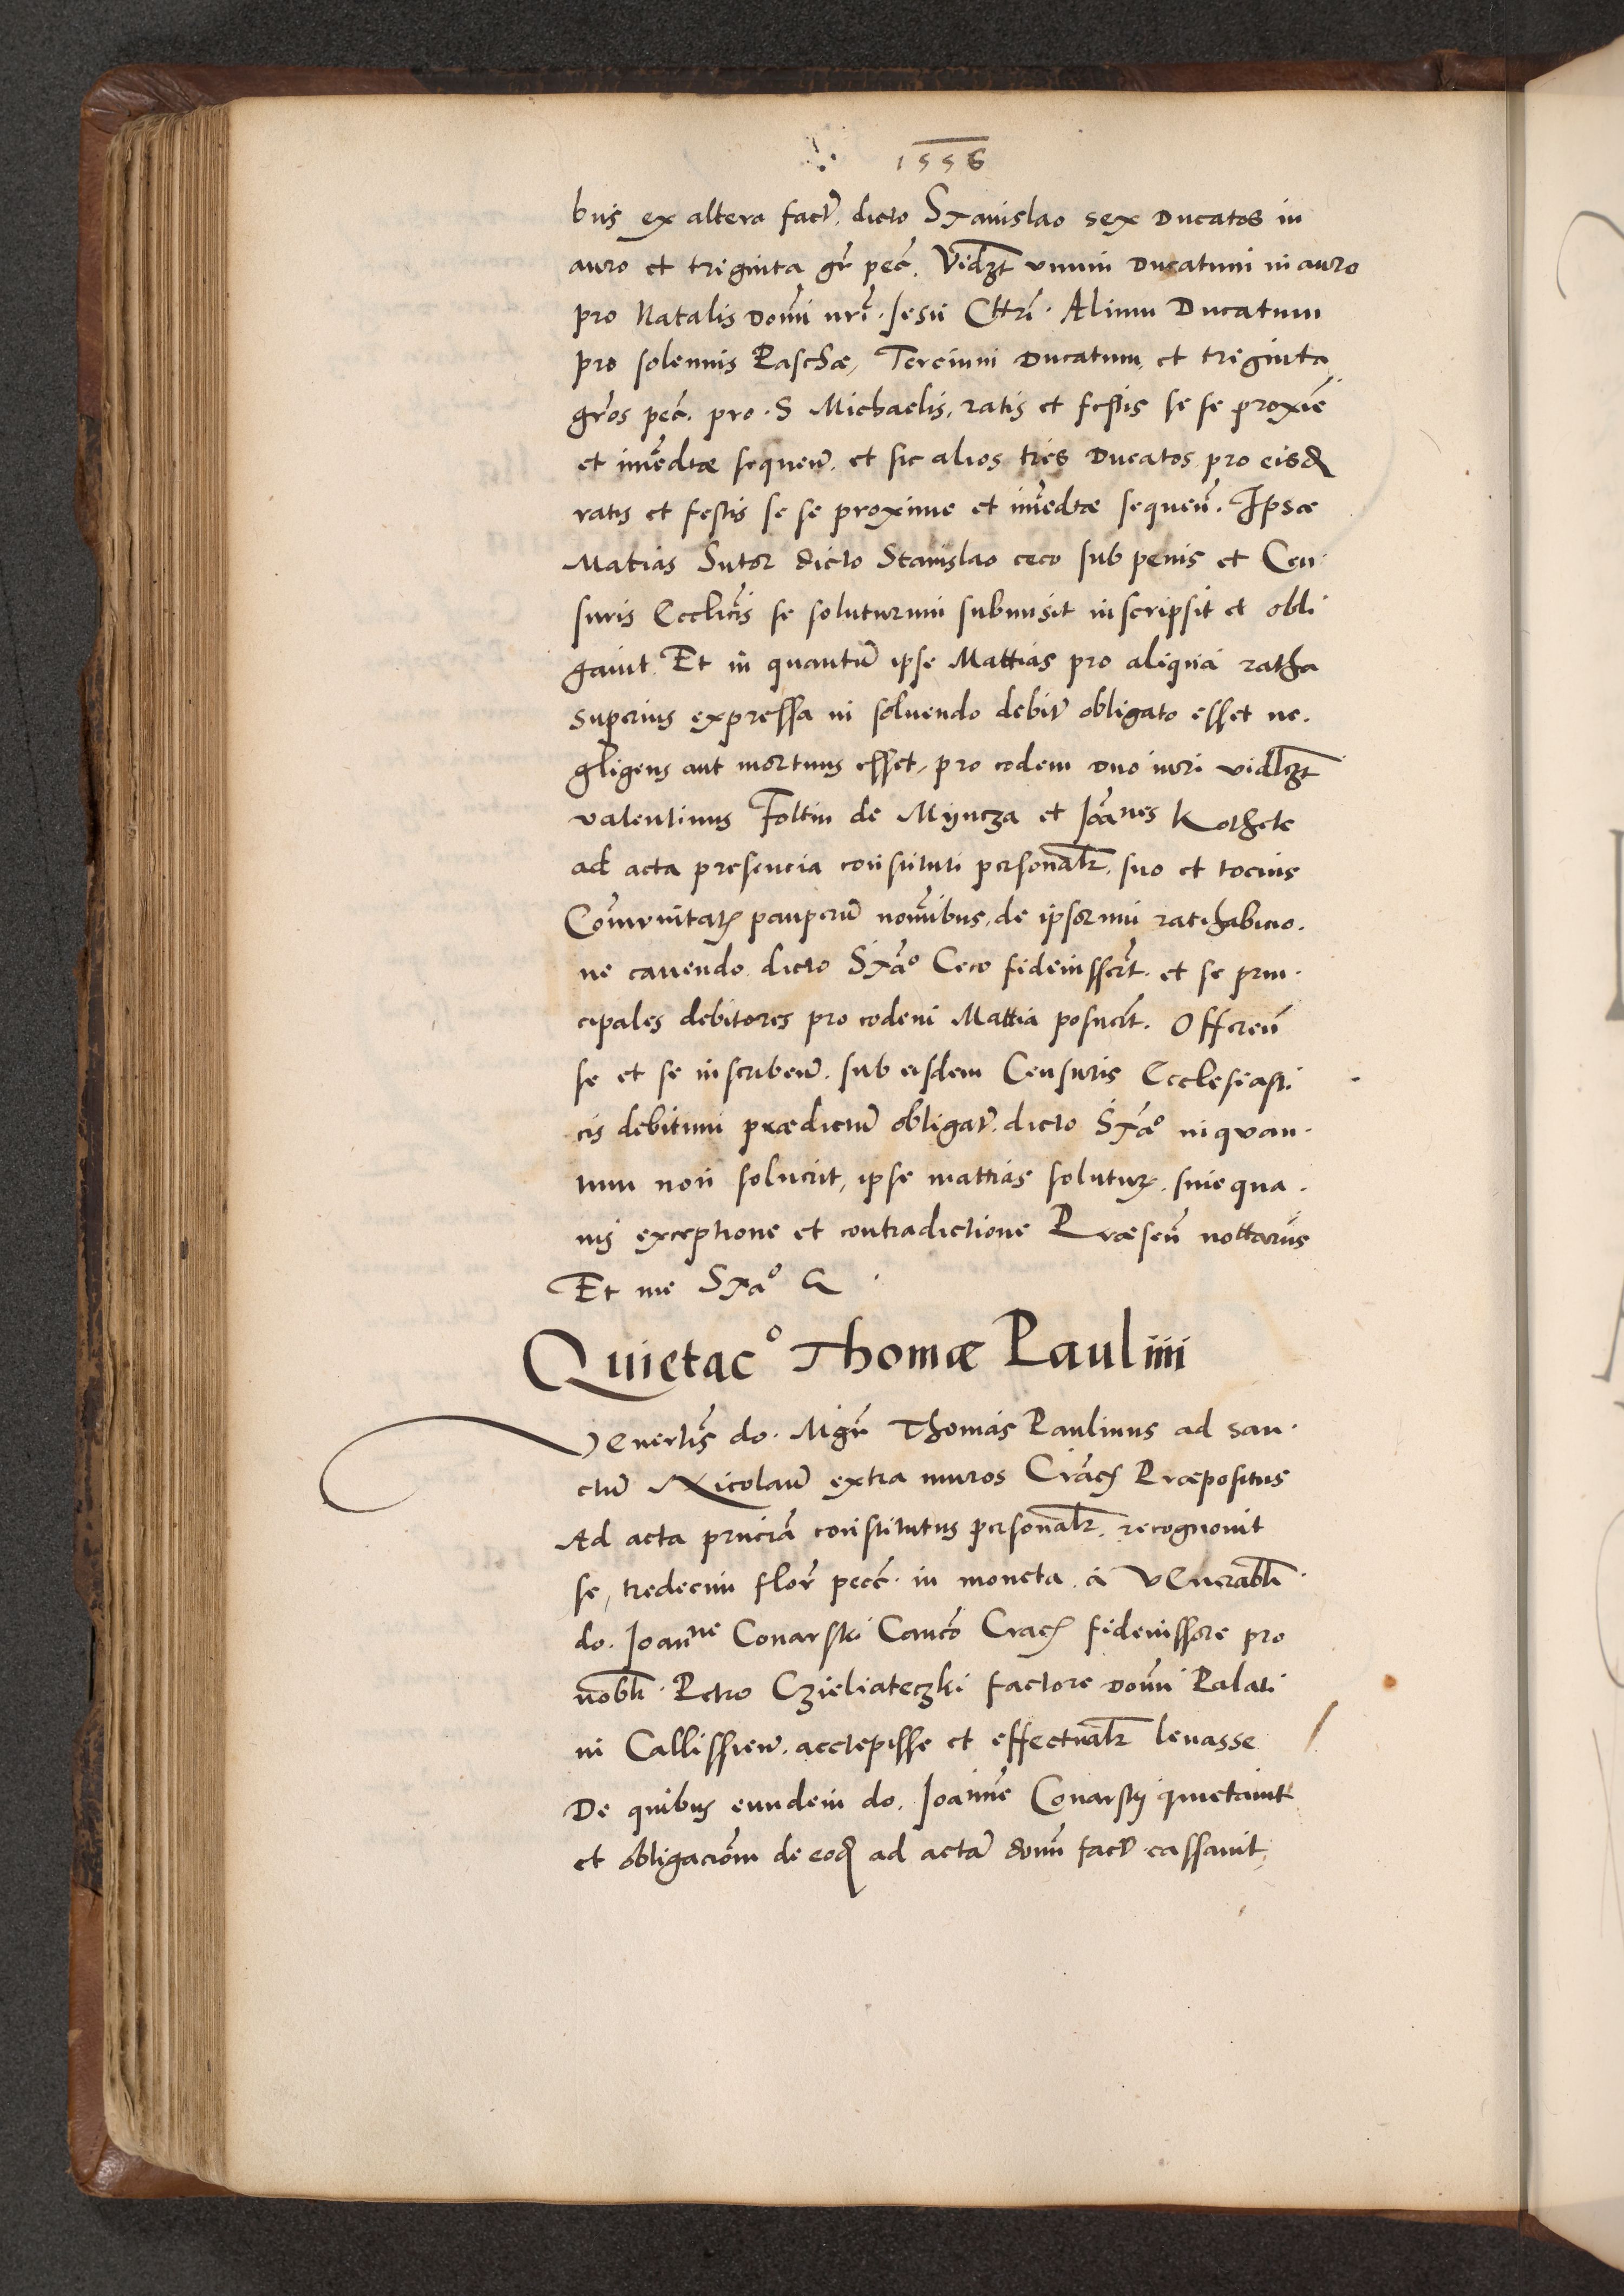 1556
bus ex altera fact. dicto Stanislao sex Ducatos in
auro et triginta gr pec. Vidzt vnum Ducatum in auro
pro Natalis Domi nri Jesu Chri. Alium Ducatum
pro solemnis Paschæ, Tercium Ducatum, et triginta
gros pec. pro. S Michaelis, ratis et festis se se proxie
et imediæ sequen. et sic alios tres Ducatos pro eisd
ratis et festis se se proxime et imediæ sequen. Ipsæ
Matias Sutor dicto Stanislao ceco sub penis et Cen
suris Ecclicis se soluturum submisit inscripsit et obli
gauit Et in quantu ipse Mattias pro aliqua ratha
superius expressa in soluendo debit obligato esset ne.
gligens aut mortuus esset, pro eodem duo iuri vidlzt
valentinus Foltin de Myncza et Joanes Kothele
ad acta presencia constituti personalr. suo et tocius
Comunitatis pauperu nomibus, de ipsorum ratihabicio.
ne cauendo dicto Stao Ceco fideiusserut. et se prin.
cipales debitores pro eodem Mattia posuerut. Offeren
se et se inscriben. sub eisdem Censuris Ecclesiasti
cis debitum prædictu obligat. dicto Stao inquan.
tum non soluerit, ipse mattias solutur. sine qua.
uis exceptione et contradictione Præsen nottarius
Et me Stao &
Quietaco Thomæ Paulini
Venerlis do. Mgr Thomas Paulinus ad san.
ctu Nicolau extra muros Crac Præpositus
Ad acta prncia constitutus personalr. recognouit
se, tredecim flor pecc. in moneta a Venerabli
do. Joanne Conarski Canco Crac fideiussore pro
nobli Petro Czieliateczki factore domi Palati
ni Callissien. accepisse et effectualr leuasse
De quibus eundem do. Joanne Conarsky quietauit
et obligaciom de eod ad acta domi fact cassauit